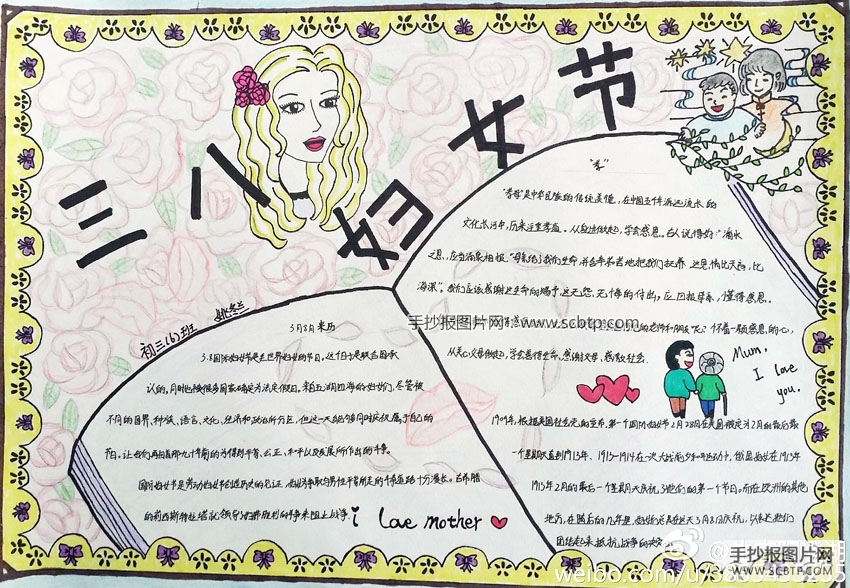 三八妇女节
初三(6)班 姚冬兰
3月8日来历
3.8国际妇女节是全世界妇女的节日。这个日子是联合国承
认的,同时也被很多国家确定为法定假日。来自五湖四海的妇女们,尽管被
不同的国界、种族、语言、文化、经济和政治所分区,但这一天能够同时庆祝属于自己的
节日。让我们再回首那九十年前的为得到平等、公正、和平以及发展所作出的斗争。
国际妇女节是劳动妇女节创造历史的见证,妇女争取与男性平等所走的斗争道路十分漫长。古希腊
的莉西斯特拉塔就领导了妇女斗争来阻止战争
i love mother
"孝"
"孝母"是中华民族的传统美德,在中国五千年源远流长的
文化长河中,历来注重孝道。从自身做起,学会感恩。古人说得好:"滴水
之恩,应当涌泉相报"
海深"。我们应该感谢
付出,应回报母亲,懂得感恩。
手抄报图片网www.scbtp.com
的老师和朋友
怀着一颗感恩的心,
从关心父母做起,学会善待生命,感谢父母,感敬社会.
Mum.
I love
you.
1909年,根据美国社会党的宣布,第一个国际妇女节2月28日在美国被定为2月的最后一
个星期天直到1913年、1913-1914在一次大战
俄国妇女在1913年
1913年2月的最后一个星期天庆祝了她们的第一个节日。而在欧洲的其他
地方,在随后的几年里,妇女们总是在这天3月8日庆祝,以表达她们
团结起来抵抗战争的决心
手抄报图片网
WWW.SCBTP.COM
weibo.com/u/